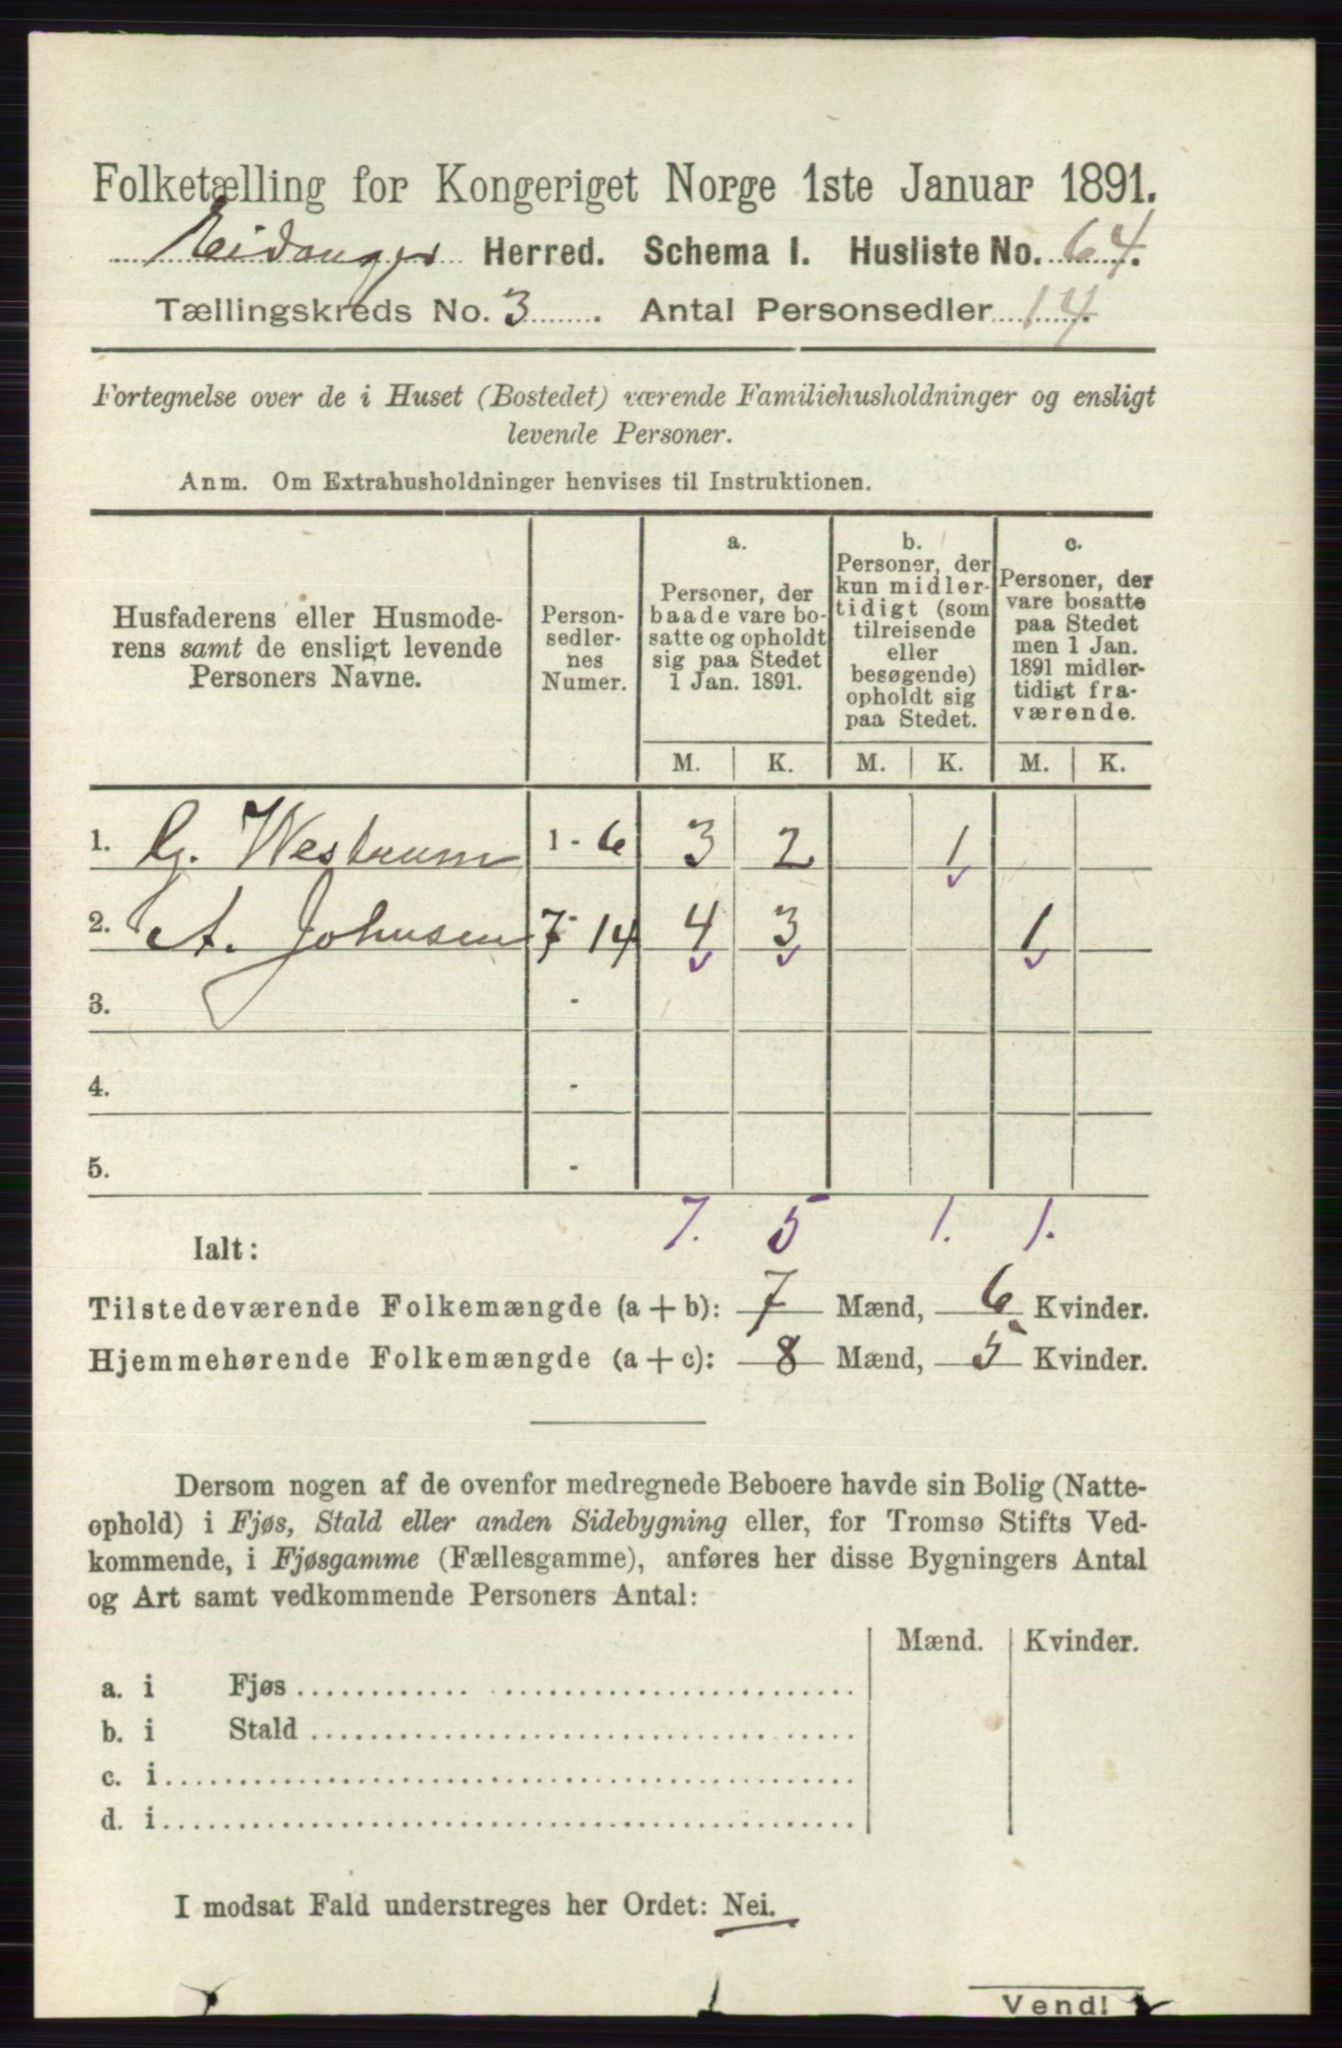 Folketælling for Kongeriget Norge 1ste Januar 1891.
Eidanger Herred. Schema I. Husliste No. 64.
Tællingskreds No. 3. Antal Personsedler 14.
Fortegnelse over de i Huset (Bostedet) værende Familiehusholdninger og ensligt
levende Personer.
Anm. Om Extrahusholdninger henvises til Instruktionen.
Husfaderens eller Husmode-
rens samt de ensligt levende
Personers Navne.
Person-
sedler-
nes
Numer.
a.
Personer, der
baade vare bo-
satte og opholdt
sig paa Stedet
1 Jan. 1891.
b.
Personer, der
kun midler-
tidigt (som
tilreisende
eller
besøgende)
opholdt sig
paa Stedet.
c.
Personer, der
vare bosatte
paa Stedet
men 1 Jan.
1891 midler-
tidigt fra-
værende.
M. K. M. K. M. K.
1. Westrum 1 - 6 3 2 1
2. A. Johnsen 7 - 14 4 3 1
3. -
4. -
5. -
Ialt: 7. 5 1. 1.
Tilstedeværende Folkemængde (a + b): 7 Mænd, 6 Kvinder.
Hjemmehørende Folkemængde (a + c): 8 Mænd, 5 Kvinder.
Dersom nogen af de ovenfor medregnede Beboere havde sin Bolig (Natte-
ophold) i Fjøs, Stald eller anden Sidebygning eller, for Tromsø Stifts Ved-
kommende, i Fjøsgamme (Fællesgamme), anføres her disse Bygningers Antal
og Art samt vedkommende Personers Antal:
Mænd. Kvinder.
a. i Fjøs
b. i Stald
c. i
d. i
I modsat Fald understreges her Ordet: Nei.
Vend!